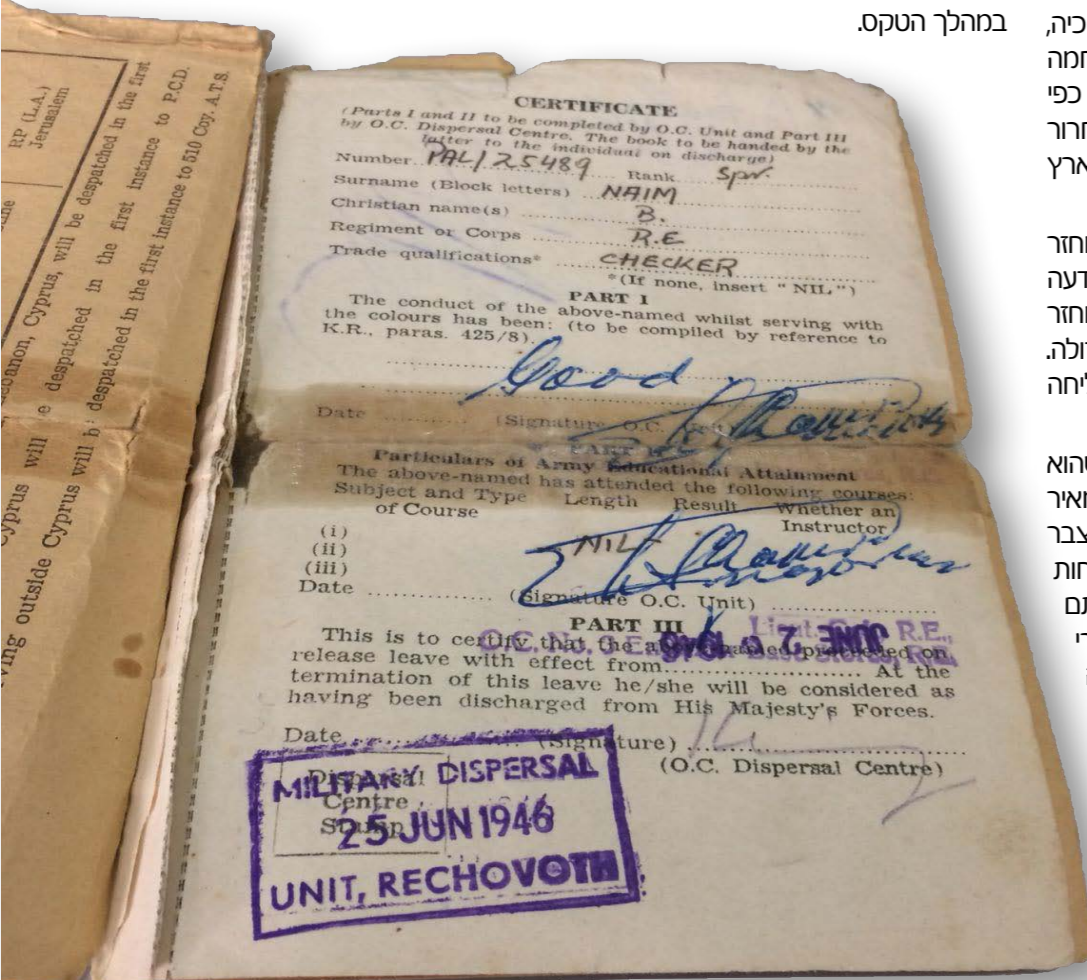 במהלך הטקס.
כיה,
חמה
כפי
חרור
ארץ
וחזר
דעה
וחזר
ליחה
שהוא
מאיר
צבר
חות
תם
RP (L.A.)
Jerusalem
ebanon, Cyprus, will be despatched in the first
despatched in the first instance to P.C.D.
Cyprus will be despatched in the first instance to 510 Coy. A.T.S.
Cyprus will
ving outside Cyprus will
CERTIFICATE
(Parts I and II to be completed by O.C. Unit and Part III
by O.C. Dispersal Centre. The book to be handed by the
latter to the individual on discharge)
Number PAL/25489 Rank Spr.
Surname (Block letters) NAIM
Christian name(s) B.
Regiment or Corps R.E
Trade qualifications* CHECKER
*(If none, insert "NIL")
PART I
The conduct of the above-named whilst serving with
the colours has been: (to be compiled by reference to
K.R., paras. 425/8).
Good
Date (Signature O.C. Unit)
PART II
Particulars of Army Educational Attainment
The above-named has attended the following courses:
Subject and Type Length Result Whether an
of Course Instructor
(i) NIL
(ii)
(iii)
Date (Signature O.C. Unit)
PART III
Lieut. R.E.,
This is to certify that the above-named proceeded on
release leave with effect from At the
termination of this leave he/she will be considered as
having been discharged from His Majesty's Forces.
Date (Signature)
(O.C. Dispersal Centre)
Dispersal
Centre
Stamp
MILITARY DISPERSAL
25 JUN 1946
UNIT, RECHOVOTH